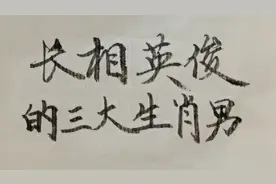 长相英俊
的三大生肖男